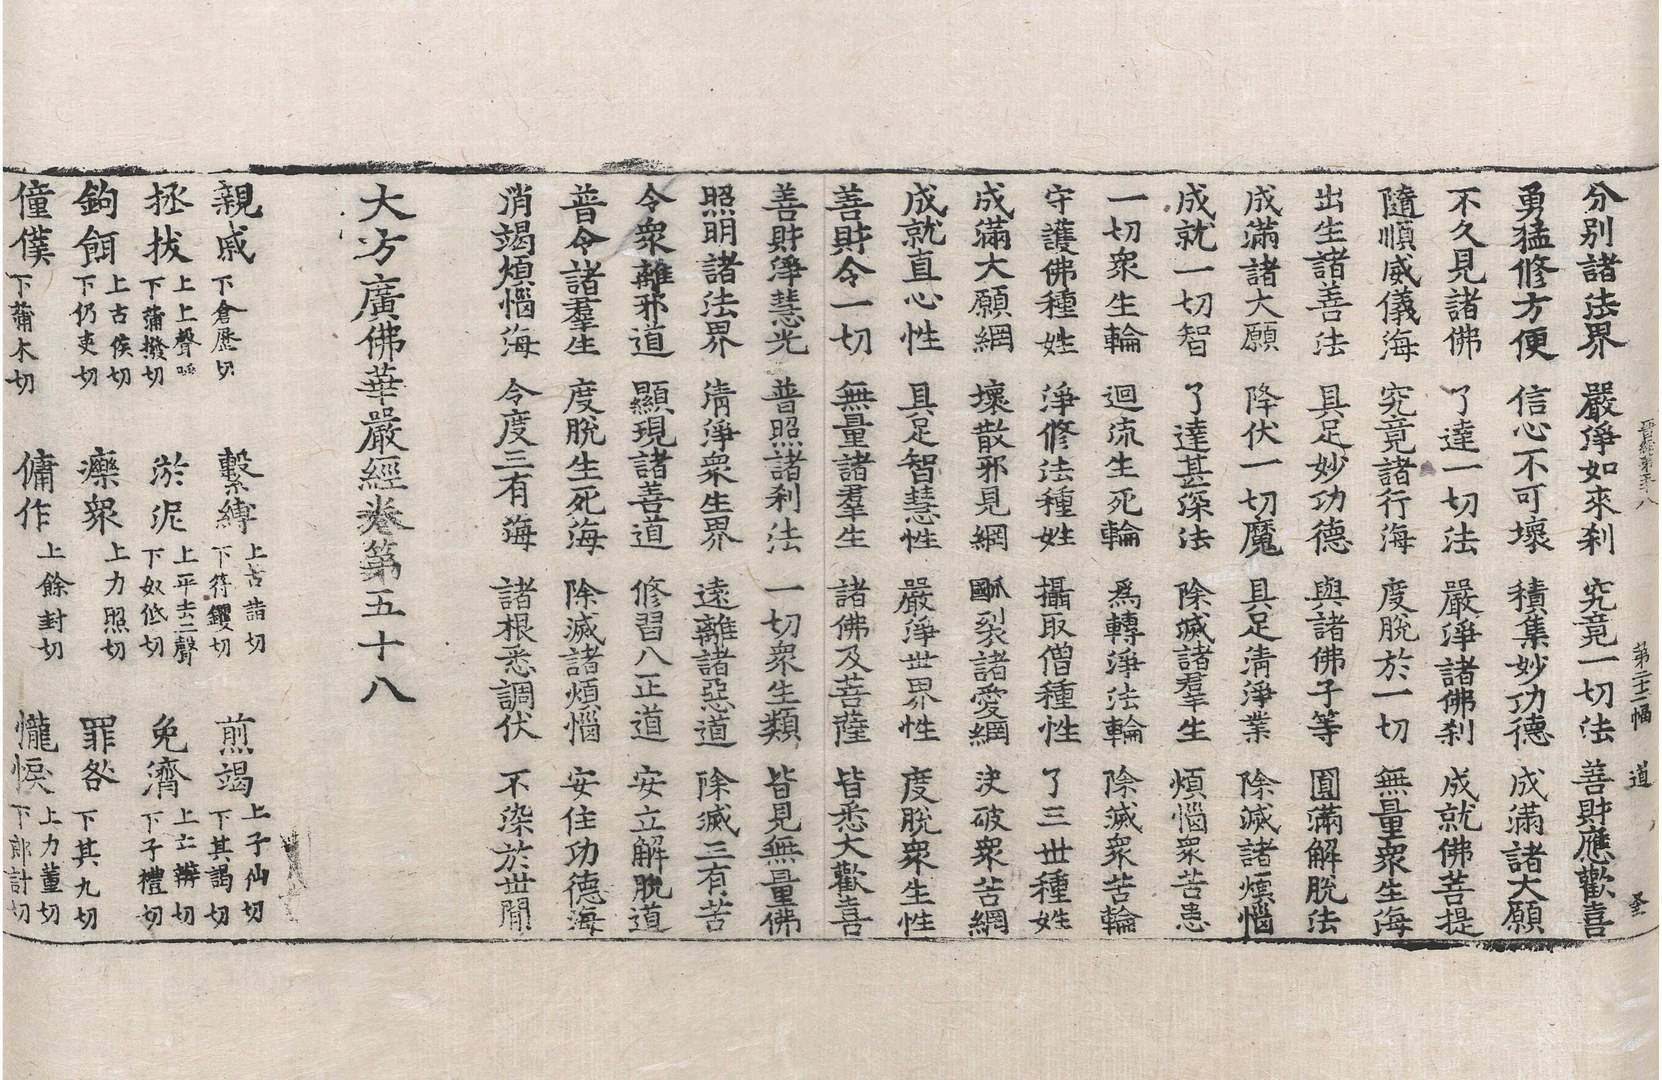 晉經第五十八 第二十二幅 道 圣
分別諸法界 嚴淨如來刹 究竟一切法 善財應歡喜
勇猛修方便 信心不可壞 積集妙功德 成滿諸大願
不久見諸佛 了達一切法 嚴淨諸佛刹 成就佛菩提
隨順威儀海 究竟諸行海 度脫於一切 無量衆生海
出生諸善法 具足妙功德 與諸佛子等 圓滿解脫法
成滿諸大願 降伏一切魔 具足清淨業 除滅諸煩惱
成就一切智 了達甚深法 除滅諸羣生 煩惱衆苦患
一切衆生輪 迴流生死輪 爲轉淨法輪 除滅衆苦輪
守護佛種姓 淨修法種姓 攝取僧種性 了三世種姓
成滿大願網 壞散邪見網 𠜾裂諸愛網 決破衆苦網
成就直心性 具足智慧性 嚴淨世界性 度脫衆生性
善財令一切 無量諸羣生 諸佛及菩薩 皆悉大歡喜
善財淨慧光 普照諸刹法 一切衆生類 皆見無量佛
照明諸法界 清淨衆生界 遠離諸惡道 除滅三有苦
令衆離邪道 顯現諸善道 修習八正道 安立解脫道
普令諸羣生 度脫生死海 除滅諸煩惱 安住功德海
消竭煩惱海 令度三有海 諸根悉調伏 不染於世間
大方廣佛華嚴經卷第五十八
親戚 下倉歷切 繫縛 上古詣切 下符钁切 煎竭 上子仙切 下其謁切
拯拔 上上聲呼 下蒲撥切 淤泥 上平去二聲 下奴低切 免濟 上亡辨切 下子禮切
鉤餌 上古侯切 下仍吏切 療衆 上力照切 罪咎 下其九切
僮僕 下蒲木切 傭作 上餘封切 𢤱悷 上力董切 下郎計切